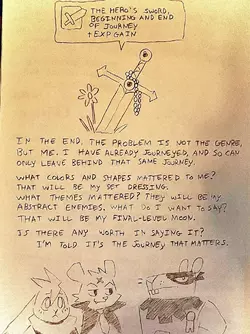 THE HERO'S SWORD,
BEGINNING AND END
OF JOURNEY
+EXP GAIN
IN THE END, THE PROBLEM IS NOT THE GENRE,
BUT ME. I HAVE ALREADY JOURNEYED, AND SO CAN
ONLY LEAVE BEHIND THAT SAME JOURNEY.
WHAT COLORS AND SHAPES MATTERED TO ME?
THAT WILL BE MY SET DRESSING.
WHAT THEMES MATTERED? THEY WILL BE MY
ABSTRACT ENEMIES. WHAT DO I WANT TO SAY?
THAT WILL BE MY FINAL-LEVEL MOON.
IS THERE ANY WORTH IN SAYING IT?
I'M TOLD IT'S THE JOURNEY THAT MATTERS.